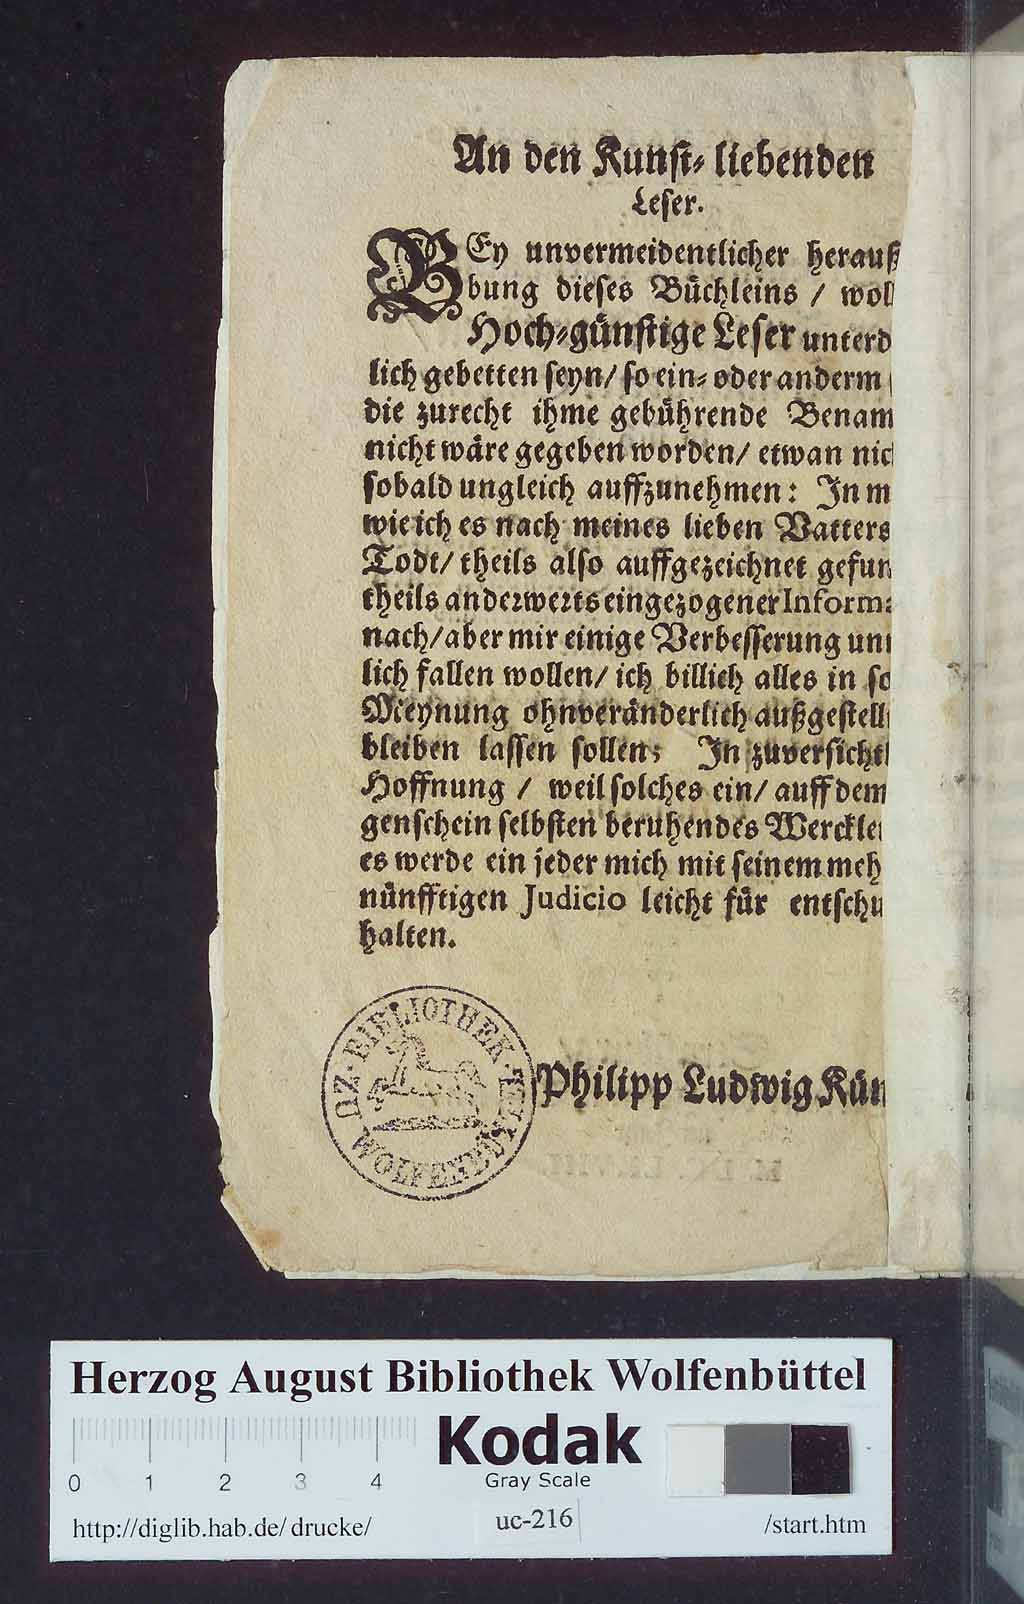 An den Kunst- liebenden
Leser.
BEy unvermeidentlicher herauß
bung dieses Büchleins / wol
Hoch-günstige Leser unterd
lich gebetten seyn/ so ein- oder anderm
die zurecht ihme gebührende Benam
nicht wäre gegeben worden/ etwan nic
sobald ungleich auffzunehmen: In m
wie ich es nach meines lieben Vatters
Todt/ theils also auffgezeichnet gefun
theils anderwerts eingezogener Informa
nach/ aber mir einige Verbesserung un
lich fallen wollen/ ich billich alles in so
Meynung ohnveränderlich außgestell
bleiben lassen sollen; In zuversicht
Hoffnung / weil solches ein/ auff dem
genschein selbsten beruhendes Wercklei
es werde ein jeder mich mit seinem meh
nünfftigen Judicio leicht für entschu
halten.
Philipp Ludwig Kün
BIBLIOTHEK
ZU WOLFENBÜTTEL
Herzog August Bibliothek Wolfenbüttel
Kodak
Gray Scale
0 1 2 3 4
http://diglib.hab.de/drucke/ uc-216 /start.htm